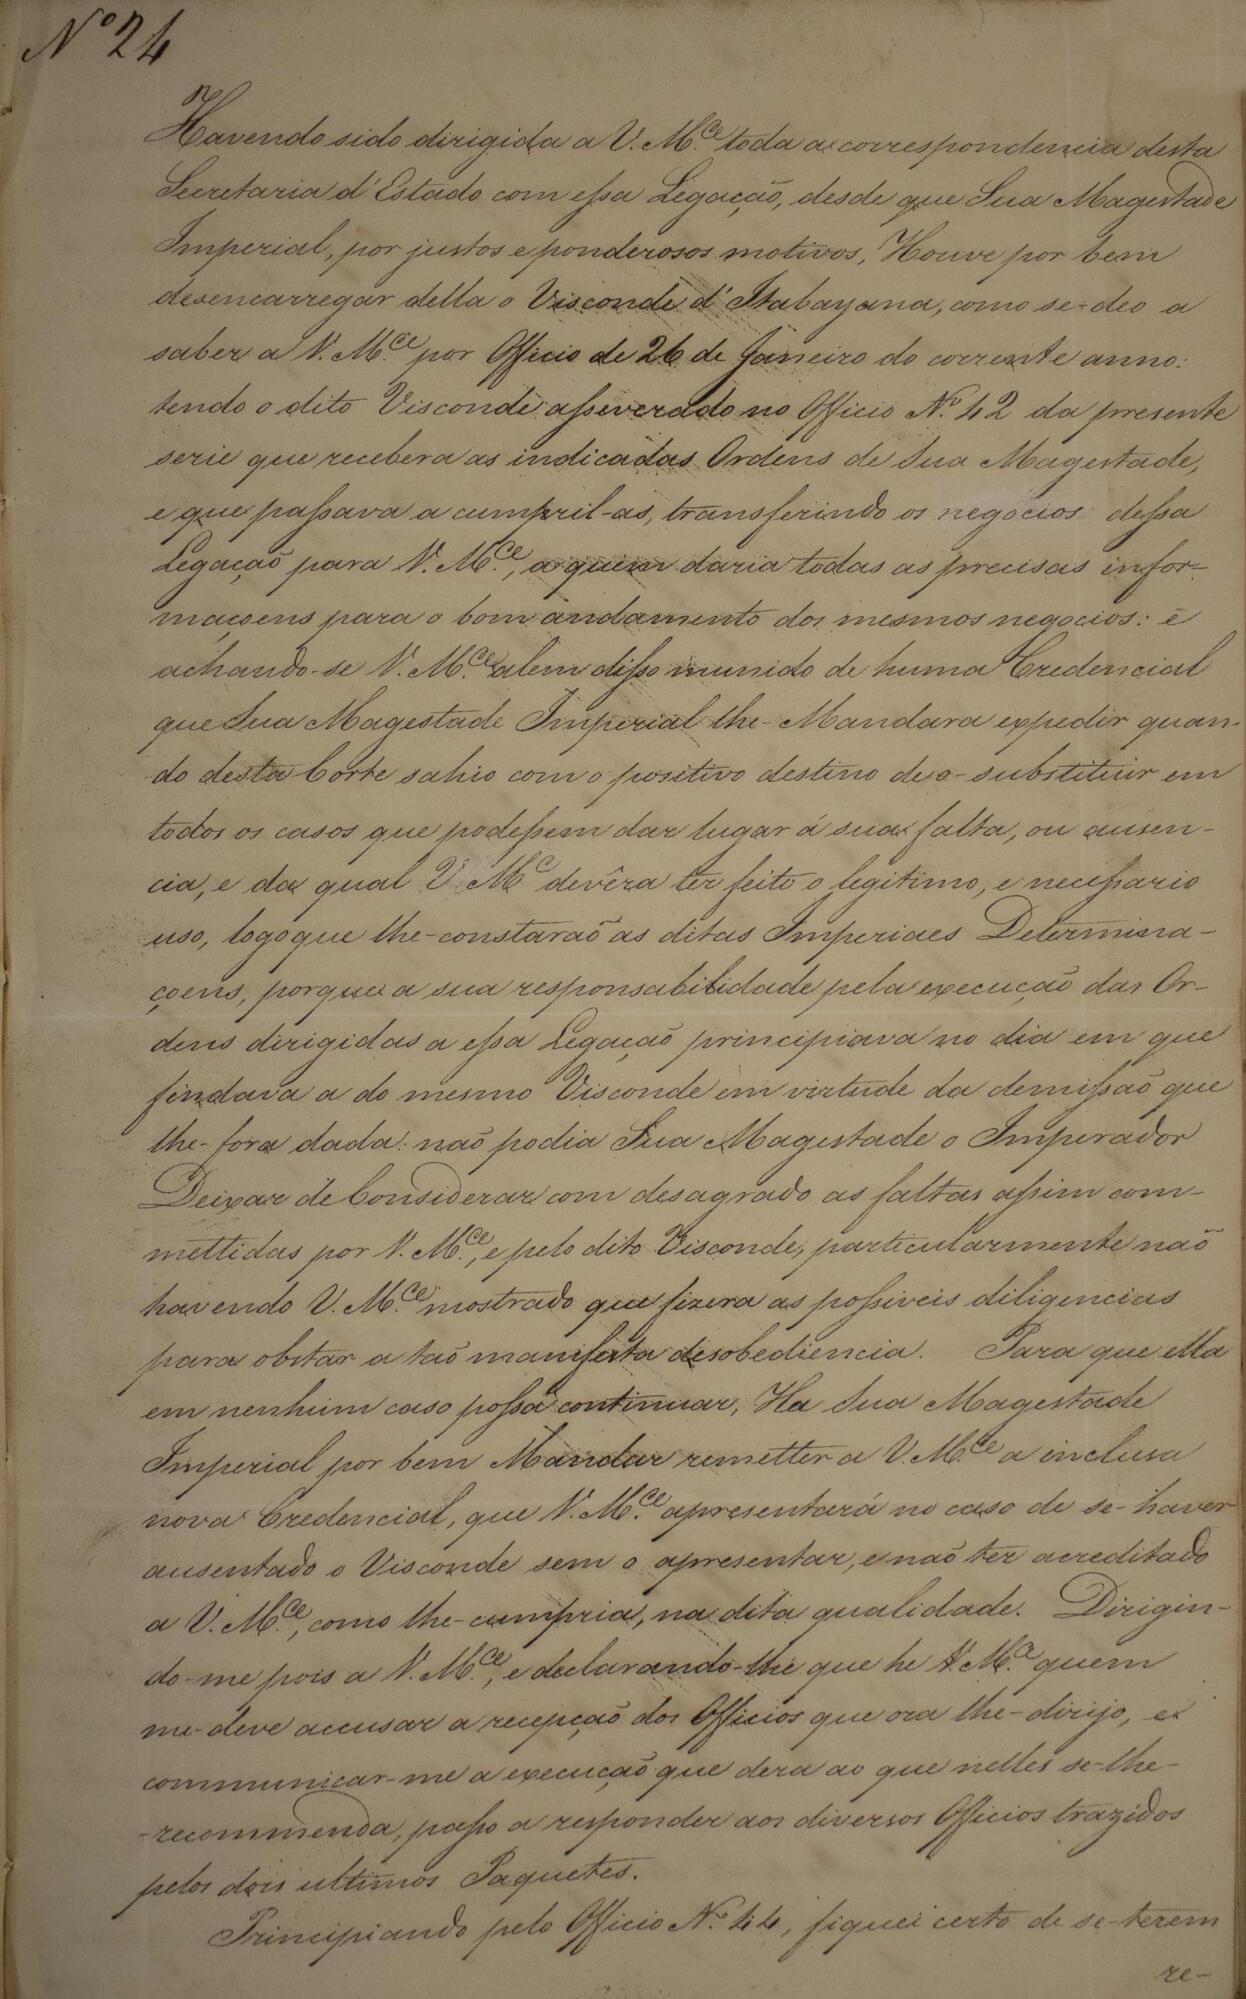 Nº 24
Havendo sido dirigida a V. M.ce toda a correspondencia desta
Secretaria d'Estado com essa Legação, desde que Sua Magestade
Imperial, por justos e ponderosos motivos, Houve por bem
desencarregar della o Visconde d'Itabayana, como se-deo a
saber a V. M.ce por Officio de 26 de Janeiro do corrente anno:
tendo o dito Visconde asseverado no Officio N.º 42 da presente
serie que recebera as indicadas Ordens de Sua Magestade,
e que passava a cumpril-as, transferindo os negocios dessa
Legação para V. M.ce, a quem daria todas as precisas infor-
maçoens para o bom andamento dos mesmos negocios: e
achando-se V. M.ce alem disso munido de huma Credencial
que Sua Magestade Imperial lhe-Mandara expedir quan-
do desta Corte sahio com o positivo destino de o-substituir em
todos os casos que podessem dar lugar á sua falta, ou ausen-
cia, e da qual V. M.ce devêra ter feito o legitimo, e necessario
uso, logo que lhe-constaraõ as ditas Imperiaes Determina-
çoens, porque a sua responsabilidade pela execução das Or-
dens dirigidas a essa Legação principiava no dia em que
findava a do mesmo Visconde em virtude da demissaõ que
lhe-fora dada: naõ podia Sua Magestade o Imperador
Deixar de Considerar com desagrado as faltas assim com-
mettidas por V. M.ce, e pelo dito Visconde, particularmente naõ
havendo V. M.ce mostrado que fizera as possiveis diligencias
para obstar a taõ manifesta desobediencia. Para que ella
em nenhum caso possa continuar, Ha Sua Magestade
Imperial por bem Mandar remetter a V. M.ce a inclusa
nova Credencial, que V. M.ce apresentará no caso de se-haver
ausentado o Visconde sem o apresentar, e naõ ter acreditado
a V. M.ce, como lhe-cumpria, na dita qualidade. Dirigin-
do-me pois a V. M.ce, e declarando-lhe que he V. M.ce quem
me-deve accusar a recepção dos Officios que ora lhe-dirijo, e
communicar-me a execução que dera ao que nelles se-lhe-
-recommenda, passo a responder aos diversos Officios trazidos
pelos dois ultimos Paquetes.
Principiando pelo Officio N.º 44, fiquei certo de se-terem
re-